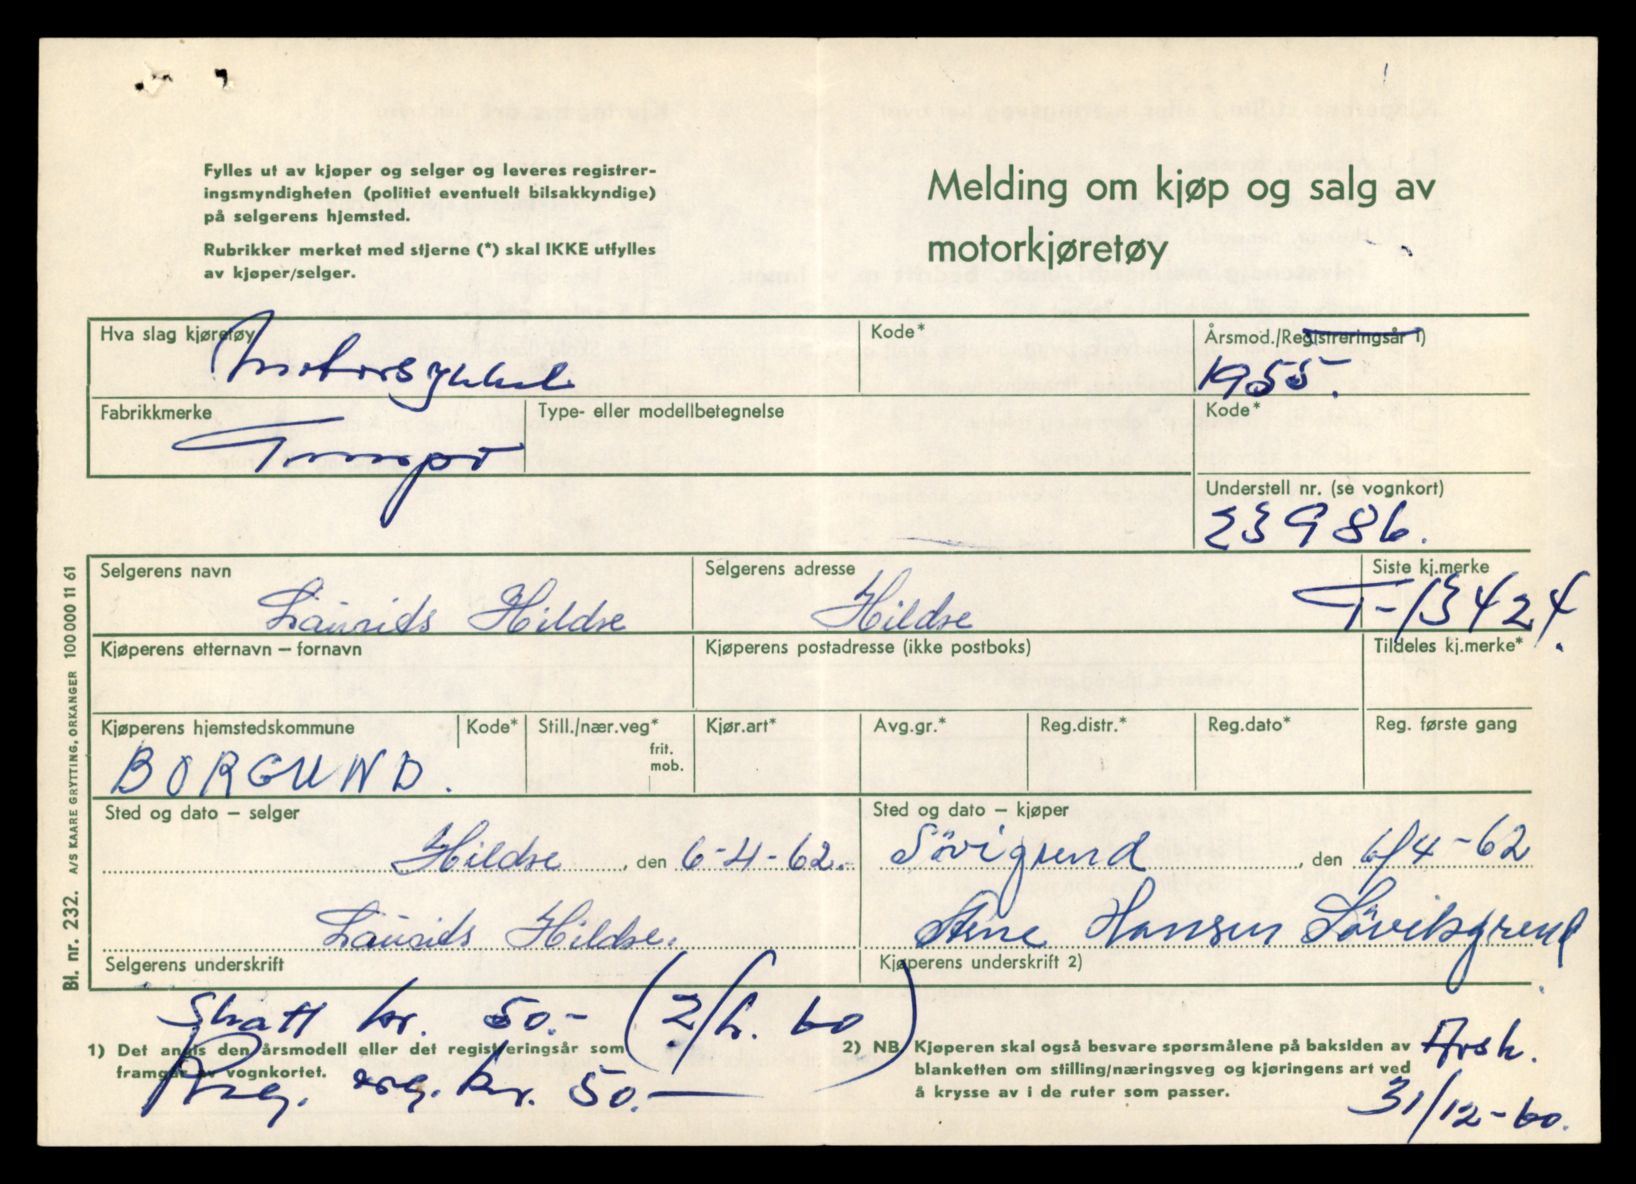 Fylles ut av kjøper og selger og leveres registrer-
ingsmyndigheten (politiet eventuelt bilsakkyndige)
på selgerens hjemsted.
Rubrikker merket med stjerne (*) skal IKKE utfylles
av kjøper/selger.
Melding om kjøp og salg av
motorkjøretøy
Hva slag kjøretøy
Motorsykkel
Kode*
Årsmod./Registreringsår 1)
1955.
Fabrikkmerke
Tempo
Type- eller modellbetegnelse
Kode*
Understell nr. (se vognkort)
23986.
Selgerens navn
Laurits Hildre
Selgerens adresse
Hildre
Siste kj.merke
T-13424.
Kjøperens etternavn – fornavn
Kjøperens postadresse (ikke postboks)
Tildeles kj.merke*
Kjøperens hjemstedskommune
BORGUND.
Kode*
Still./nær.veg*
frit.
mob.
Kjør.art*
Avg.gr.*
Reg.distr.*
Reg.dato*
Reg. første gang
Sted og dato – selger
Hildre, den 6-4-62.-
Laurits Hildre.
Selgerens underskrift
Sted og dato – kjøper
Sövigrend, den 6/4-62
Arne Hansen Sövikgrend
Kjøperens underskrift 2)
Skatt kr. 50.- (2/h. 60)
Reg. avg. kr. 50.-
1) Det angis den årsmodell eller det registreringsår som
framgår av vognkortet.
2) NB. Kjøperen skal også besvare spørsmålene på baksiden av
blanketten om stilling/næringsveg og kjøringens art ved
å krysse av i de ruter som passer.
Arsk.
31/12-60.
Bl. nr. 232. A/S KAARE GRYTTING, ORKANGER 100 000 11 61